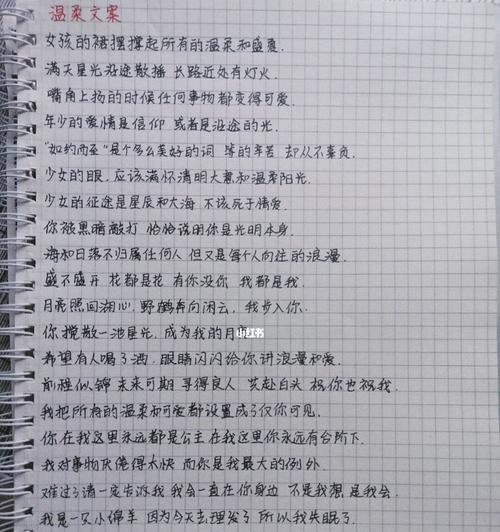 温柔文案
女孩的裙摆撑起所有的温柔和盛夏.
满天星光沿途散播 长路近处有灯火.
嘴角上扬的时候任何事物都变得可爱.
年少的爱情是信仰 或者是沿途的光.
"如约而至"是个多么美好的词 等的辛苦 却从不辜负.
少女的眼,应该满怀清明大意和温柔阳光.
少女的征途是星辰和大海 不该死于情爱.
你被黑暗敲打 恰恰说明你是光明本身.
海和日落不归属任何人 但又是每个人向往的浪漫.
盛不盛开 花都是花 有你没你 我都是我.
月亮照回湖心,野鹤奔向闲云,我步入你.
你搅散一池星光,成为我的月
小红书
希望有人喝了酒,眼睛闪闪给你讲浪漫和爱.
前程似锦 未来可期 寻得良人 共赴白头 祝你也祝我.
我把所有的温柔和可爱都设置成了仅你可见.
你在我这里永远都是公主在我这里你永远有台阶下.
我对事物厌倦得太快 而你是我最大的例外.
难过了请一定告诉我 我会一直在你身边 不是我想 是我会.
我是一只小绵羊 因为今天去理发了 所以我失眠了.